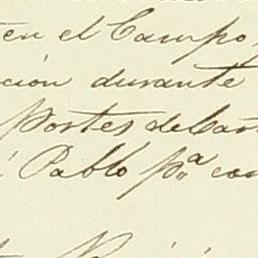 en el Campo,
ción durante
Postes de
Pablo pª con